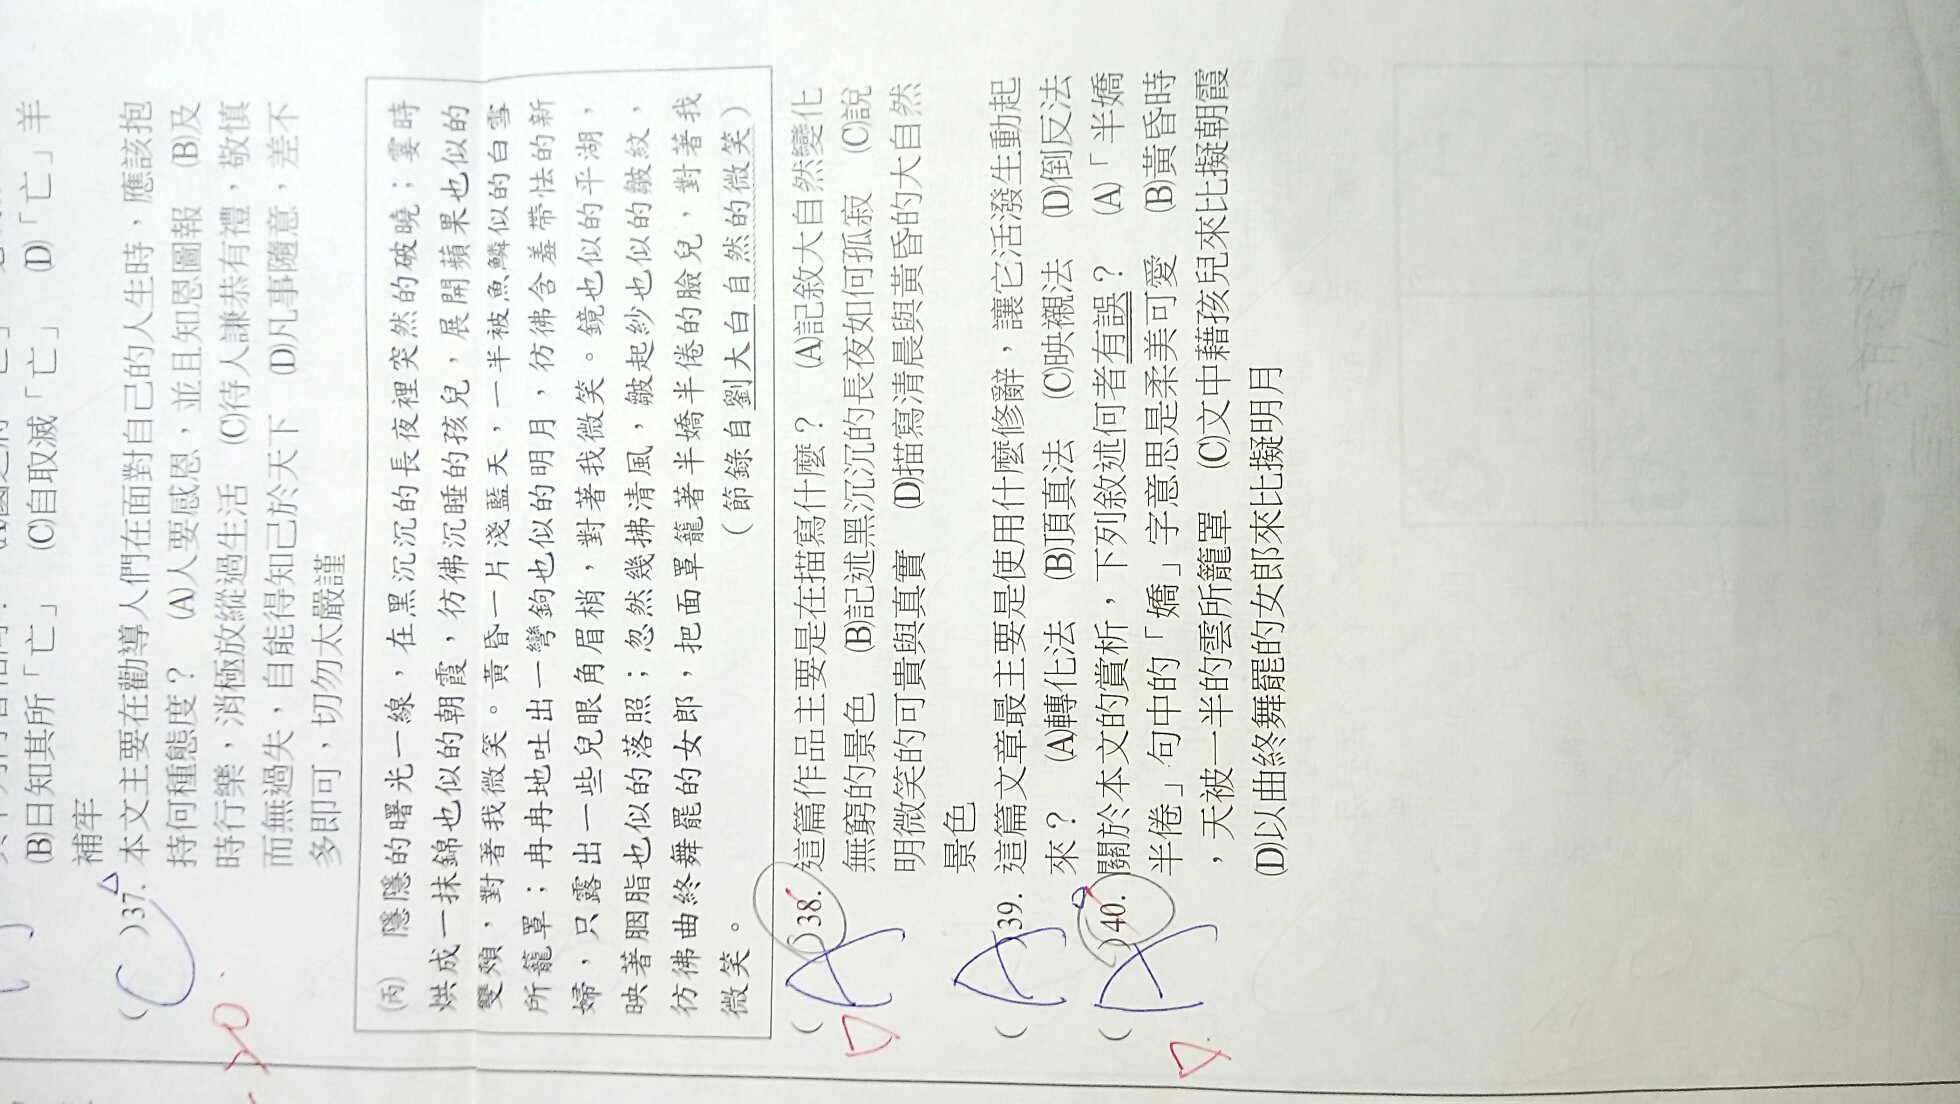 (B)日知其所「亡」 (C)自取滅「亡」 (D)「亡」羊
補牢
( C )37. 本文主要在勸導人們在面對自己的人生時，應該抱
持何種態度？ (A)人要感恩，並且知恩圖報 (B)及
時行樂，消極放縱過生活 (C)待人謙恭有禮，敬慎
而無過失，自能得知己於天下 (D)凡事隨意，差不
多即可，切勿太嚴謹
(丙) 隱隱的曙光一線，在黑沉沉的長夜裡突然的破曉；霎時
烘成一抹錦也似的朝霞，彷彿沉睡的孩兒，展開蘋果也似的
雙頰，對著我微笑。黃昏一片淺藍天，一半被魚鱗似的白雲
所籠罩；冉冉地吐出一彎鉤也似的明月，彷彿含羞帶怯的新
婦，只露出一些兒眼角眉梢，對著我微笑。鏡也似的平湖，
映著胭脂也似的落照；忽然幾拂清風，皺起紗也似的皺紋，
彷彿曲終舞罷的女郎，把面罩籠著半嬌半倦的臉兒，對著我
微笑。 (節錄自劉大白自然的微笑)
( A )38. 這篇作品主要是在描寫什麼？ (A)記敘大自然變化
無窮的景色 (B)記述黑沉沉的長夜如何孤寂 (C)說
明微笑的可貴與真實 (D)描寫清晨與黃昏的大自然
景色
( A )39. 這篇文章最主要是使用什麼修辭，讓它活潑生動起
來？ (A)轉化法 (B)頂真法 (C)映襯法 (D)倒反法
( A )40. 關於本文的賞析，下列敘述何者有誤？ (A)「半嬌
半倦」句中的「嬌」字意思是柔美可愛 (B)黃昏時
，天被一半的雲所籠罩 (C)文中藉孩兒來比擬朝霞
(D)以曲終舞罷的女郎來比擬明月